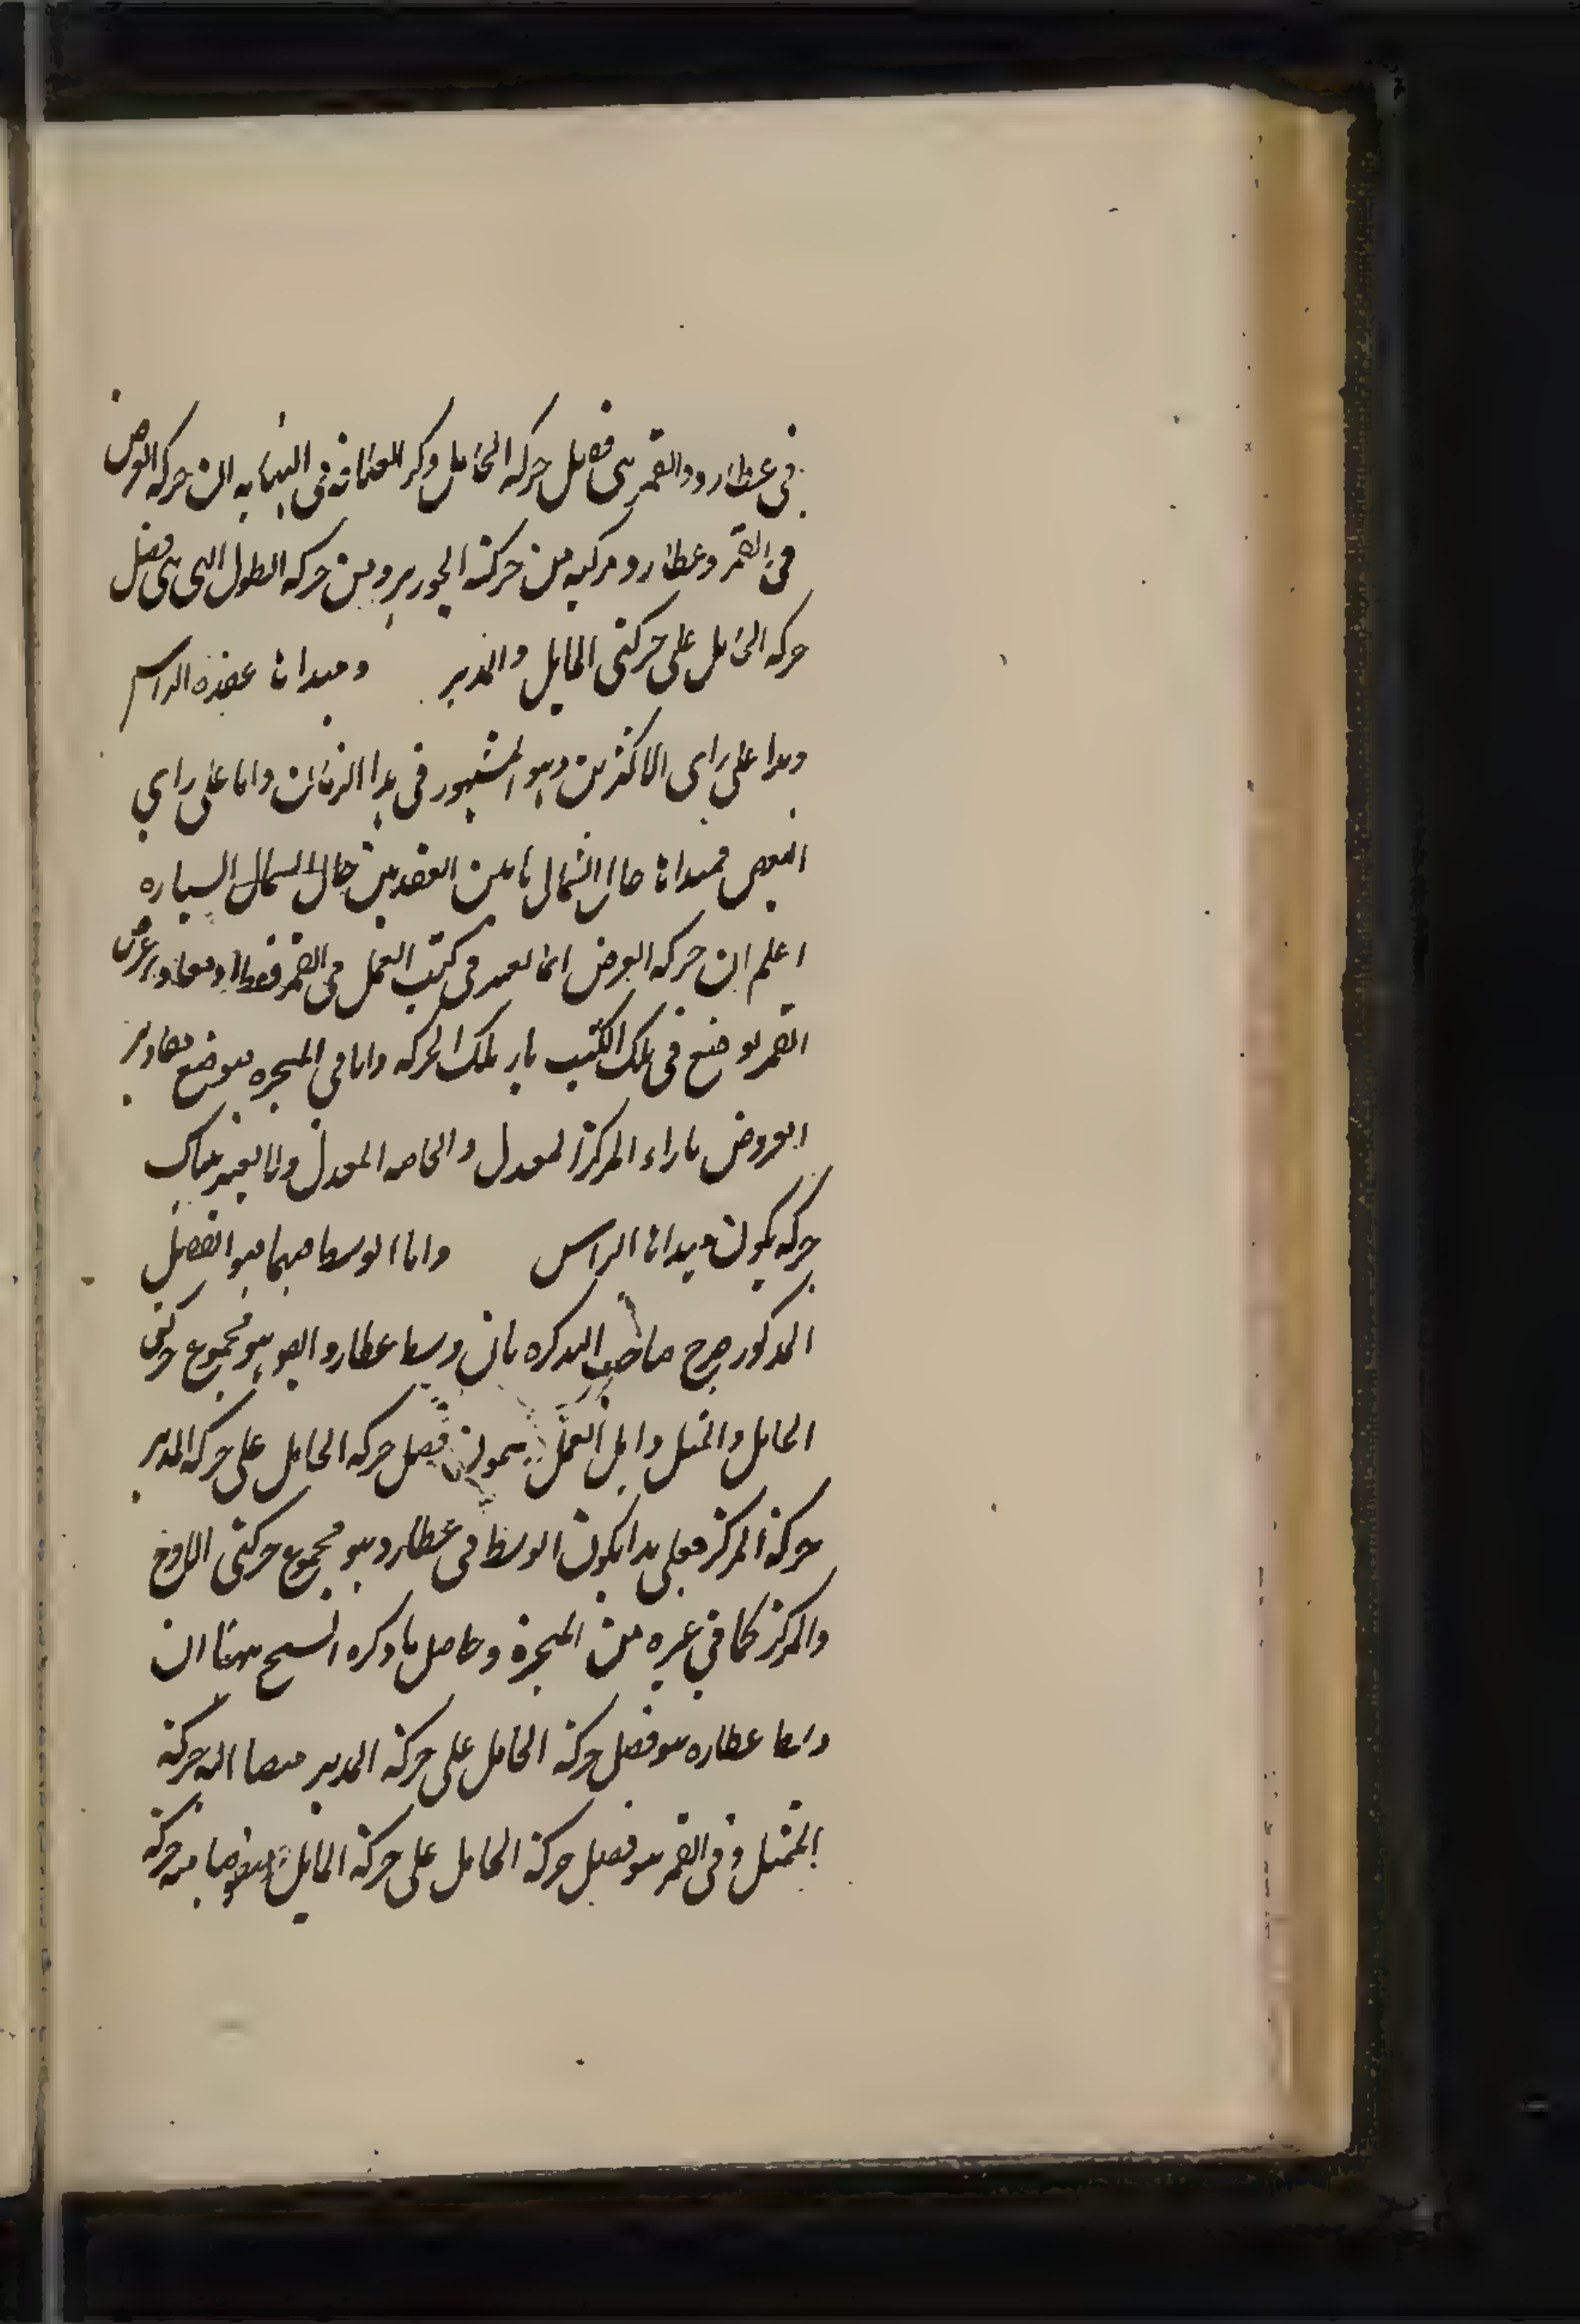 في عطارد والقمر هي فضل حركه الحامل وذكر العلامة في النهايه ان حركه العرض
في القمر وعطارد مركبه من حركة الجوزهر ومن حركه الطول التي هي فضل
حركه الحامل على حركتي المايل والمدير ومبداها عقده الراس
وهذا على راى الاكثرين وهو المشهور في هذا الزمان واما على راي
البعض فمبداها حال الشمال ما بين العقدتين حال الشمال السياره
اعلم ان حركه العرض انما تعتبر في كتب العمل في القمر فقط اذ مقادير عرض
القمر توضع في تلك الكتب بازاء تلك الحركه واما في المتحيره فتوضع مقادير
العروض بازاء المركز المعدل والخاصه المعدل ولا يعتبر هناك
حركه يكون مبداها الراس واما الوسط فيهما فهو الفضل
المذكور صرح صاحب التذكره بان وسط عطارد ايضا هو مجموع حركتي
الحامل والممثل واهل العمل يسمون فضل حركه الحامل على حركه المدير
حركة المركز فعلى هذا يكون الوسط في عطارد هو مجموع حركتي الاوج
والمركز كما في غيره من المتحيرة وحاصل ما ذكره الشيخ ههنا ان
وسط عطارد هو فضل حركة الحامل على حركة المدير مضافا اليه حركة
الممثل وفي القمر هو فضل حركة الحامل على حركة المايل منقوصا منه حركة